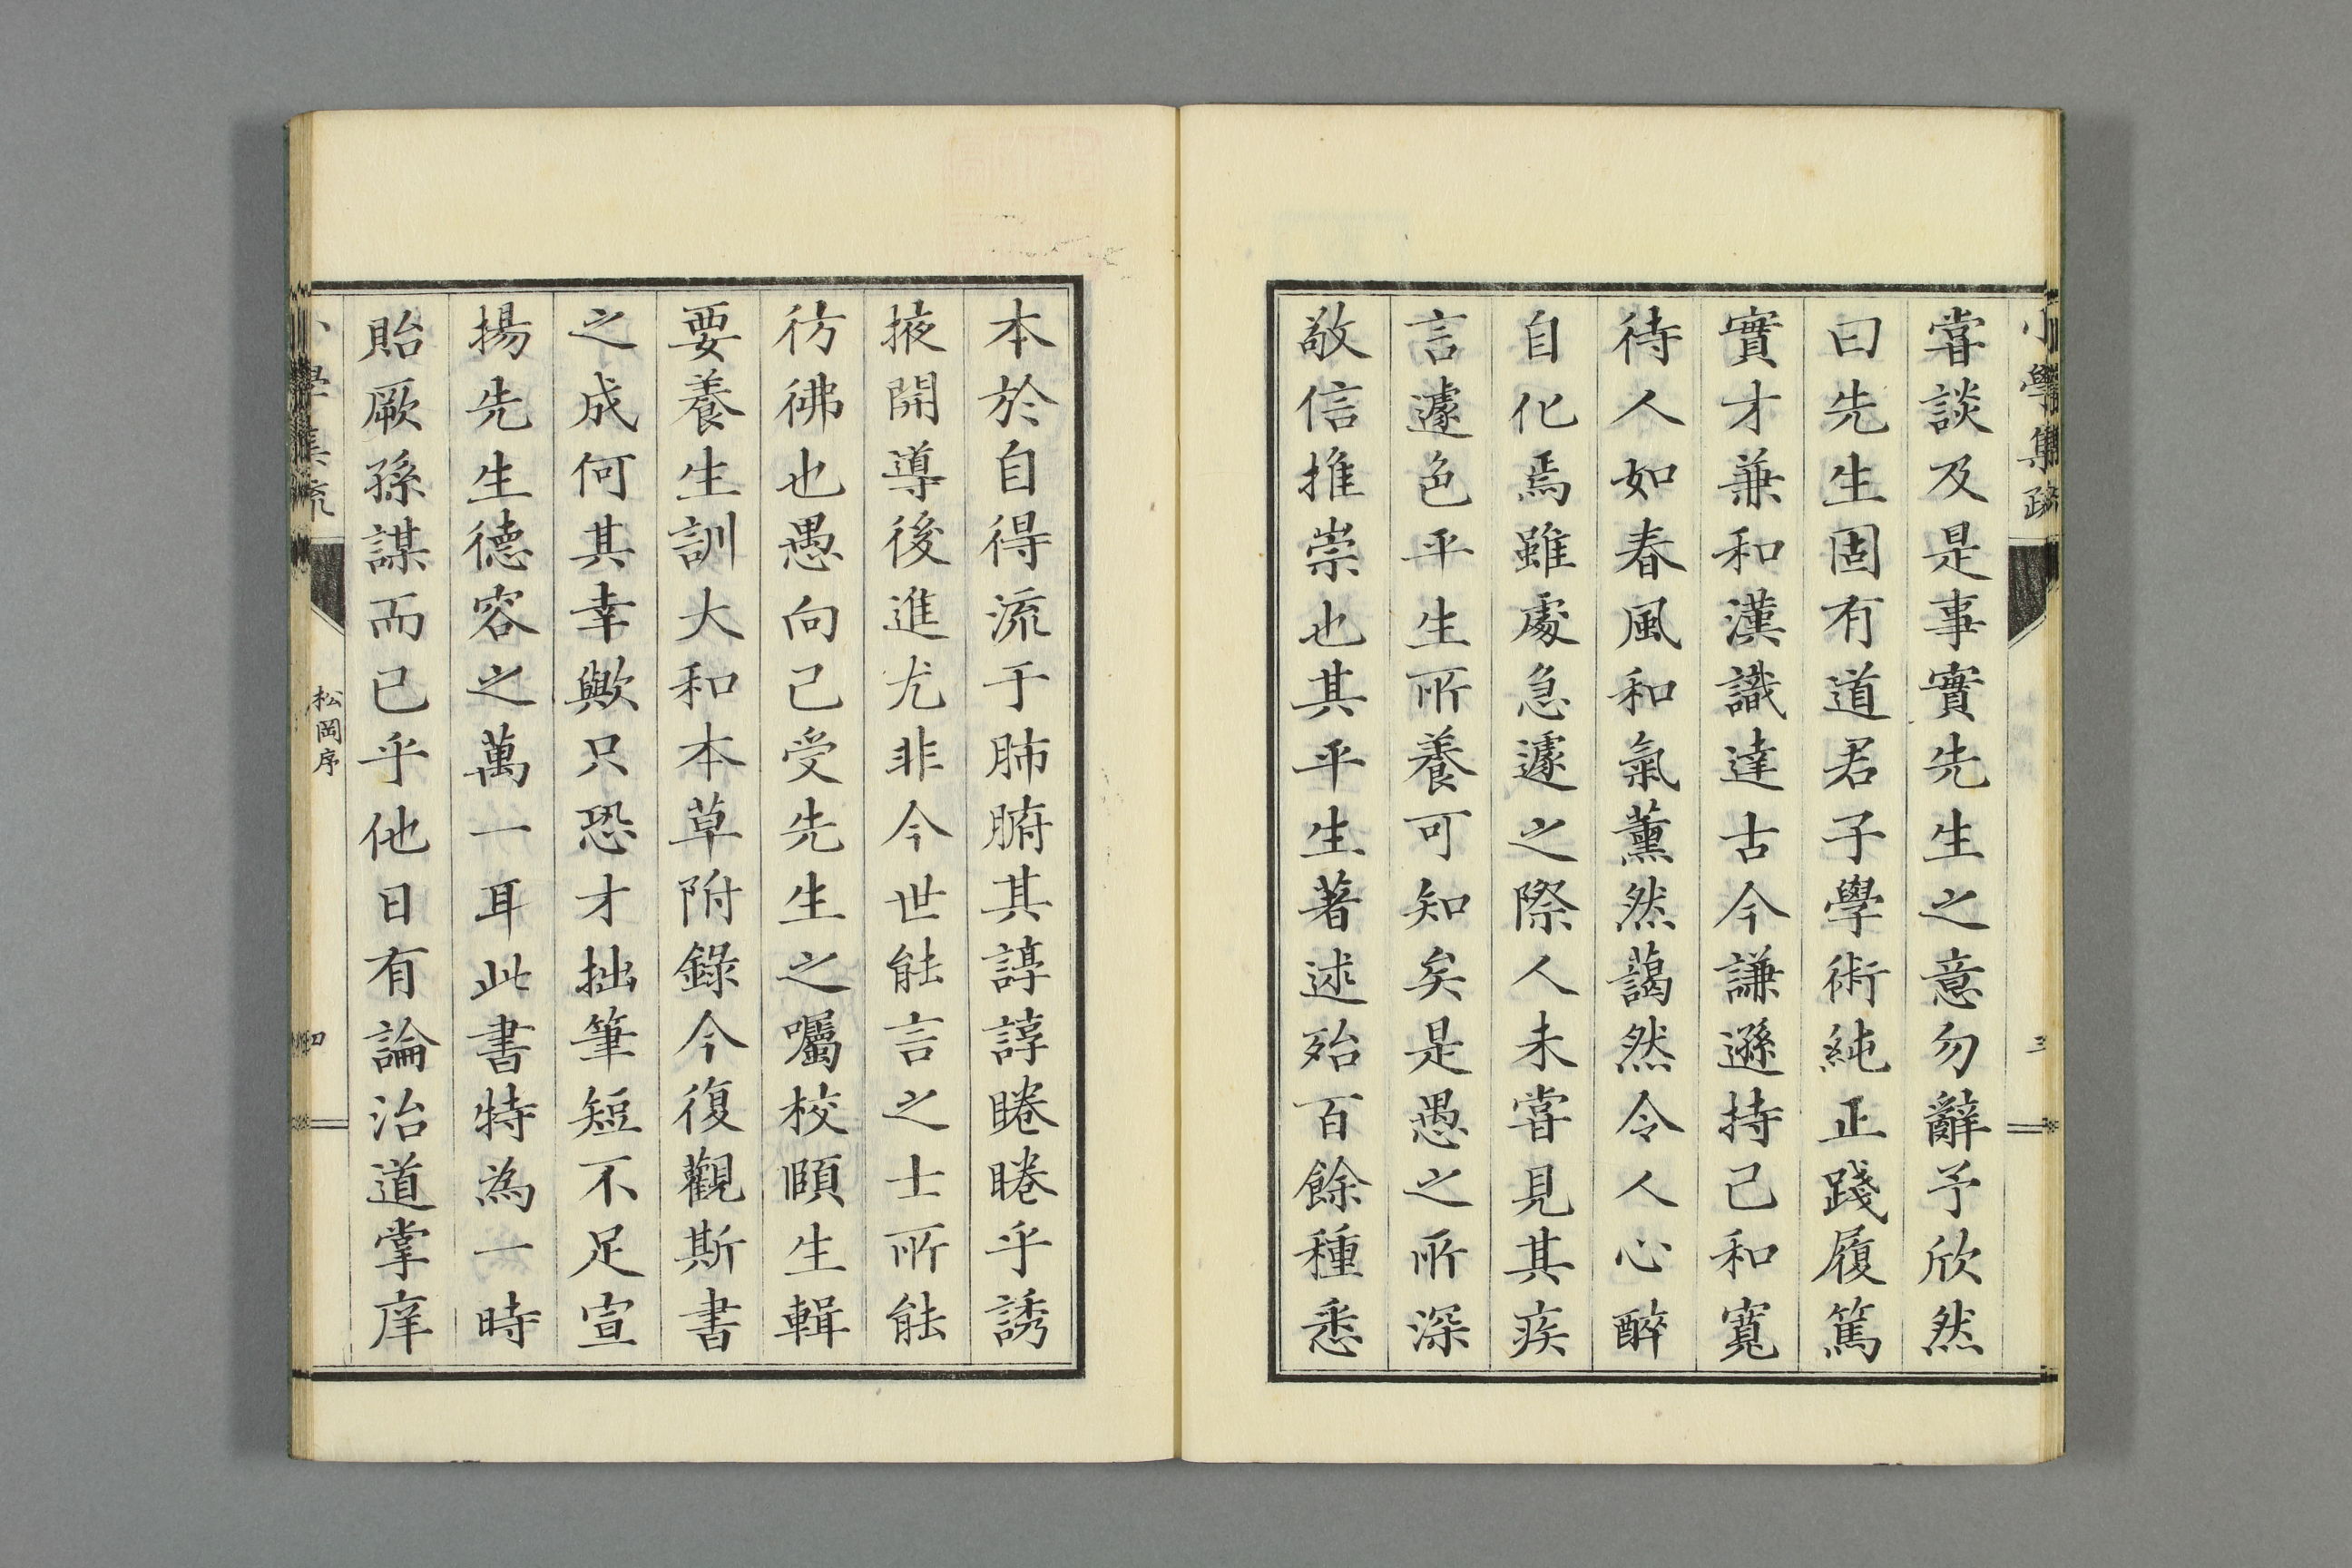 小學集疏
三
嘗談及是事實先生之意勿辭予欣然
曰先生固有道君子學術純正踐履篤
實才兼和漢識達古今謙遜持己和寬
待人如春風和氣薰然藹然令人心醉
自化焉雖處急遽之際人未嘗見其疾
言遽色平生所養可知矣是愚之所深
敬信推崇也其平生著述殆百餘種悉
本於自得流于肺腑其諄諄睠睠乎誘
掖開導後進尤非今世能言之士所能
彷彿也愚向己受先生之囑校頤生輯
要養生訓大和本草附錄今復觀斯書
之成何其幸歟只恐才拙筆短不足宣
揚先生德容之萬一耳此書特為一時
貽厥孫謀而已乎他日有論治道掌庠
小學集疏
松岡序
四